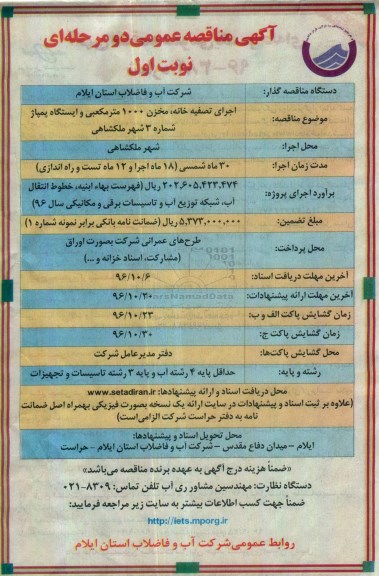 آگهی مناقصه عمومی دو مرحله‌ای
نوبت اول
دستگاه مناقصه گذار: شرکت آب و فاضلاب استان ایلام
موضوع مناقصه: اجرای تصفیه خانه، مخزن ۱۰۰۰ مترمکعبی و ایستگاه پمپاژ
شماره ۳ شهر ملکشاهی
محل اجرا: شهر ملکشاهی
مدت زمان اجرا: ۳۰ ماه شمسی (۱۸ ماه اجرا و ۱۲ ماه تست و راه اندازی)
برآورد اجرای پروژه: ۲۰۲,۶۰۵,۴۲۳,۴۷۴ ریال (فهرست بهاء ابنیه، خطوط انتقال
آب، شبکه توزیع آب و تاسیسات برقی و مکانیکی سال ۹۶)
مبلغ تضمین: ۵,۳۷۳,۰۰۰,۰۰۰ ریال (ضمانت نامه بانکی برابر نمونه شماره ۱)
محل پرداخت: طرح‌های عمرانی شرکت بصورت اوراق
(مشارکت، اسناد خزانه و ...)
آخرین مهلت دریافت اسناد: ۹۶/۱۰/۶
آخرین مهلت ارائه پیشنهادات: ۹۶/۱۰/۲۰
زمان گشایش پاکت الف و ب: ۹۶/۱۰/۲۳
زمان گشایش پاکت ج: ۹۶/۱۰/۳۰
محل گشایش پاکت‌ها: دفتر مدیرعامل شرکت
رشته و پایه: حداقل پایه ۴ رشته آب و پایه ۳ رشته تاسیسات و تجهیزات
محل دریافت اسناد و ارائه پیشنهادها: www.setadiran.ir
(علاوه بر ثبت اسناد و پیشنهادات در سایت ارائه یک نسخه بصورت فیزیکی بهمراه اصل ضمانت
نامه به دفتر حراست شرکت الزامی است)
محل تحویل اسناد و پیشنهادها:
ایلام - میدان دفاع مقدس - شرکت آب و فاضلاب استان ایلام - حراست
«ضمناً هزینه درج آگهی به عهده برنده مناقصه می‌باشد»
دستگاه نظارت: مهندسین مشاور ری آب تلفن تماس: ۸۳۰۹-۰۲۱
ضمناً جهت کسب اطلاعات بیشتر به سایت زیر مراجعه فرمایید:
http://iets.mporg.ir
روابط عمومی شرکت آب و فاضلاب استان ایلام